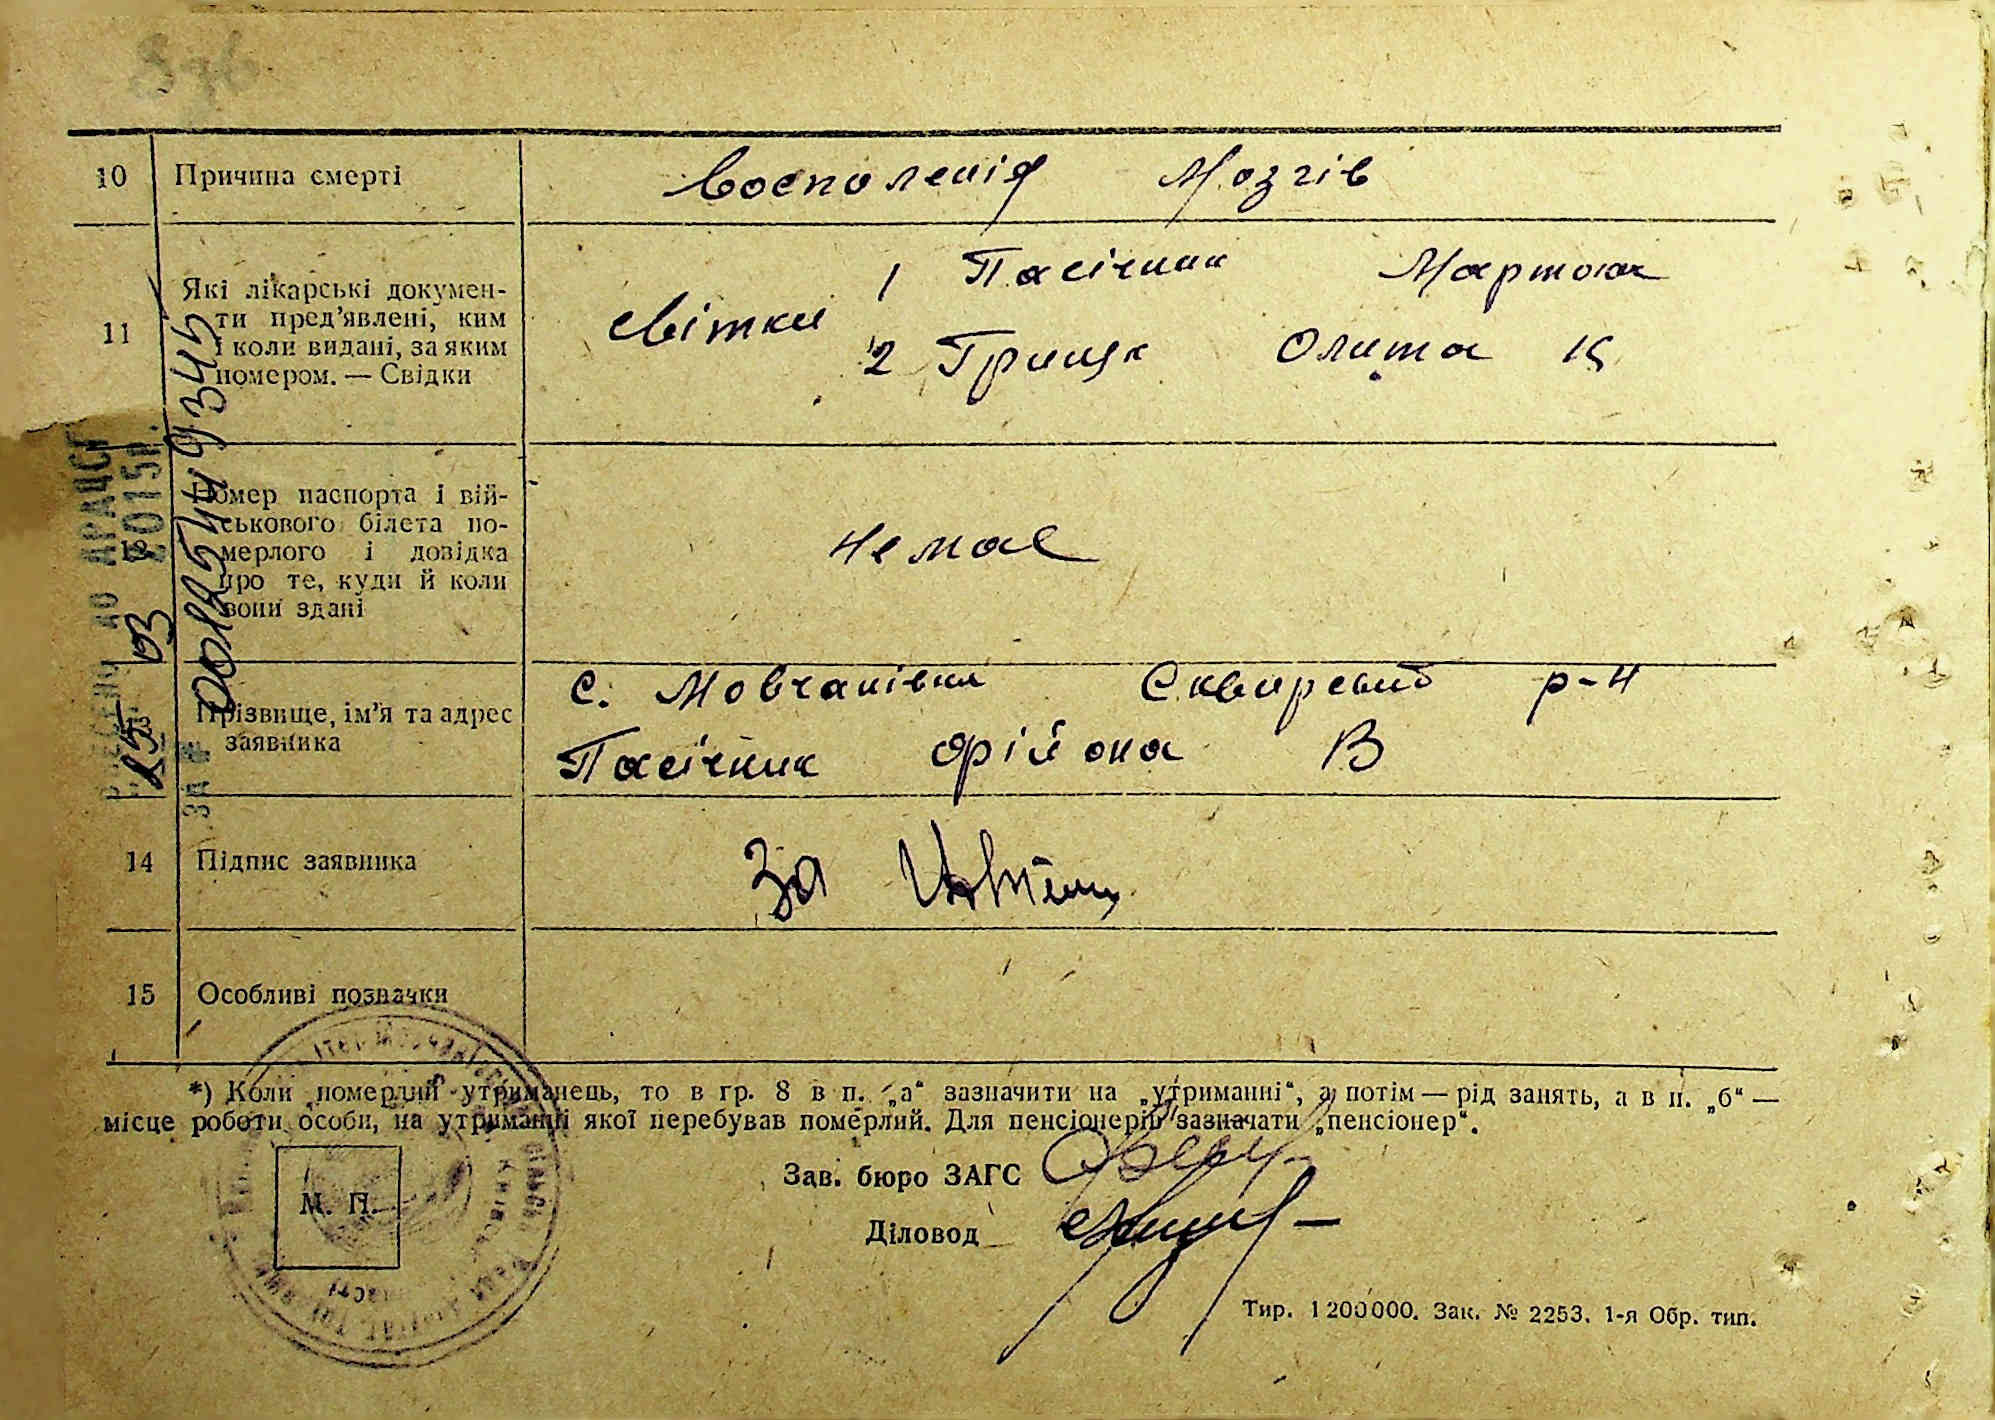 10 Причина смерті Восполенія Мозгів
11 Які лікарські докумен-
ти пред'явлені, ким
і коли видані, за яким
номером. — Свідки
Світки 1 Пасічник
2 Грищук Олита К
12 Номер паспорта і вій-
ськового білета по-
мерлого і довідка
про те, куди й коли
вони здані
Немає
Прізвище, ім'я та адрес
заявника
с. Мовчанівка Сквирський р-н
Пасічник Фрійона В
14 Підпис заявника За
15 Особливі позначки
*) Коли померлий утриманець, то в гр. 8 в п. „а“ зазначити на „утриманні“, а потім — рід занять, а в п. „б“ —
місце роботи особи, на утриманні якої перебував померлий. Для пенсіонерів зазначати „пенсіонер“.
М. П.
Зав. бюро ЗАГС
Діловод
Тир. 1200000. Зак. № 2253. 1-я Обр. тип.
ДО ДРАЦСГ
2015р.
25 03
ЗА №
00125449345